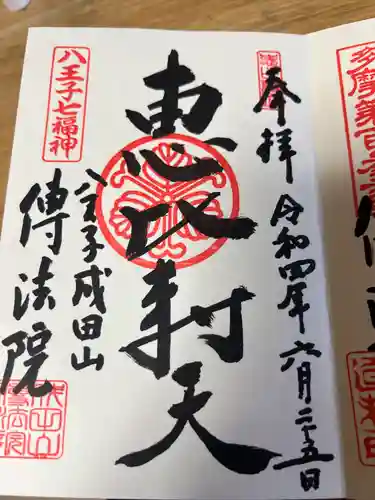 奉拝
令和四年六月二十五日
恵比寿天
八王子七福神
八王子成田山
傳法院